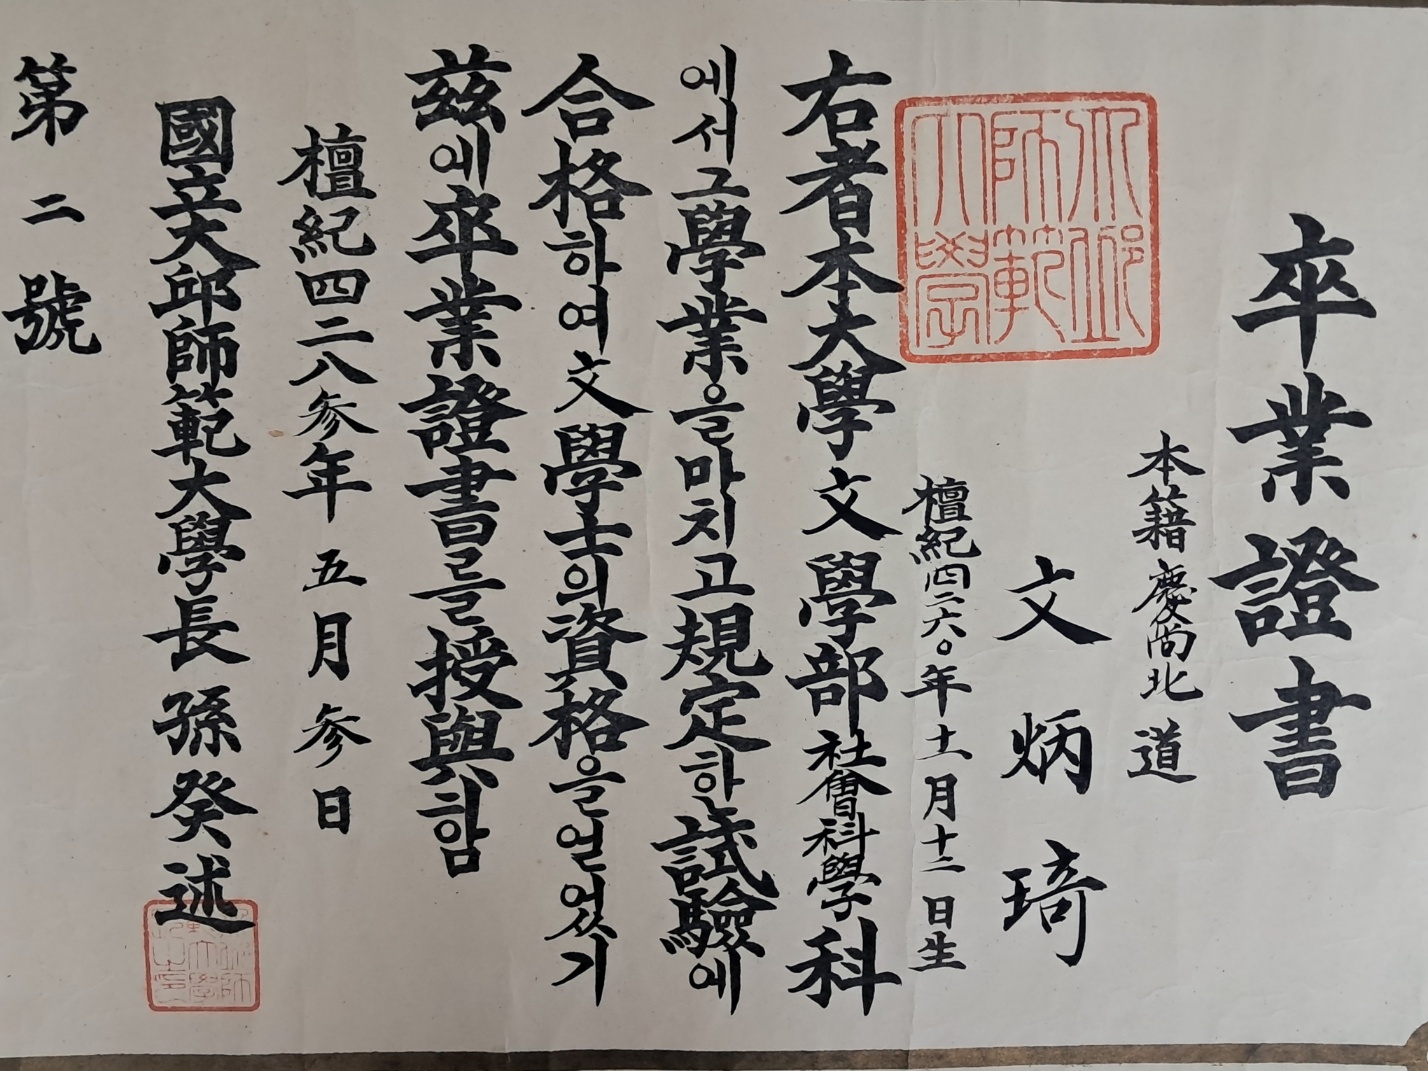 卒業證書
本籍 慶尚北道
文炳琦
檀紀四二六〇年十一月十二日生
大邱師範大學
右者本大學文學部社會科學科
에서 그學業을마치고規定하는試驗에
合格하여文學士의資格을얻었기
玆에卒業證書를授與함
檀紀四二八参年 五月 参日
國立大邱師範大學長 孫癸述
第二號